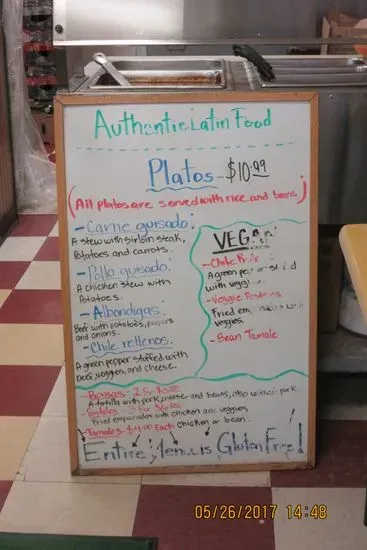 Authentic Latin Food
Platos - $10.99
(All platos are served with rice and beans)
- Carne guisado:
A stew with sirloin steak,
Potatoes and carrots.
- Pollo guisado:
A chicken stew with
Potatoes.
- Albondigas:
Beef with potatoes, peppers
and onions.
- Chile rellenos:
A green pepper stuffed with
beef, veggies, and cheese.
VEGAN:
- Chile
A green
with
- Veggie
Fried
veggies.
- Bean Tamale
- Pupusas - 2 for
A tortilla with pork, cheese and beans, also without pork.
- Pasteles - 3 for
Fried empanadas with chicken and veggies
- Tamales - $4.00 Each chicken or bean.
Entire Menu is Gluten Free!
05/26/2017 14:48